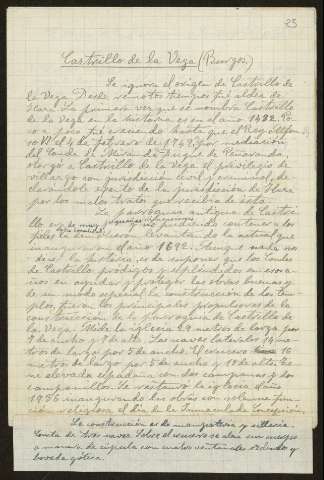 23
Castrillo de la Vega (Burgos.)
Se ignora el origen de Castrillo de
la Vega. Desde remotos tiempos fué aldea de
Haza. La primera vez que se nombra Castrillo
de la Vega en la historia es en el año 1482. Po-
co a poco fué creciendo hasta que el Rey Alfon-
el 4 de febrero de 1749, por mediación
del Conde de Miranda, Duque de Peñaranda
otorgó a Castrillo de la Vega el privilegio de
villazgo con jurisdicción civil y criminal, de-
clarándole exento de la jurisdicción de Haza
por los malos tratos que recibía de ésta
La parroquia antigua de Castri-
llo era de muy pequeñas dimensiones
y no pudiendo contener a los
fieles de la villa fué levantada la actual que se
inauguró en el año 1692. Aunque nada nos
dice la historia, es de suponer que los Condes
de Castrillo pródigos y espléndidos en ocasio-
nes en ayudar y proteger las obras buenas y
de un modo especial la construcción de los tem-
plos, fueron los principales propulsores de la
construcción de la parroquia de Castrillo de
la Vega. Mide la iglesia 29 metros de larga por
9 de ancho y 9 de alto. Las naves laterales 14 me-
tros de largo por 5 de ancho. El crucero 16
metros de largo por 5 de ancho y 10 de alto; tie-
ne elevada espadaña con dos campanas y dos
campanillos. Se restauró la iglesia el año
1956 inaugurando las obras con solemne fun-
ción religiosa el día de la Inmaculada Concepción.
La construcción es de mampostería y sillería.
Consta de tres naves. Sobre el crucero se alza un cuerpo
a manera de cúpula con cuatro ventanales redondos y
bóveda gótica.